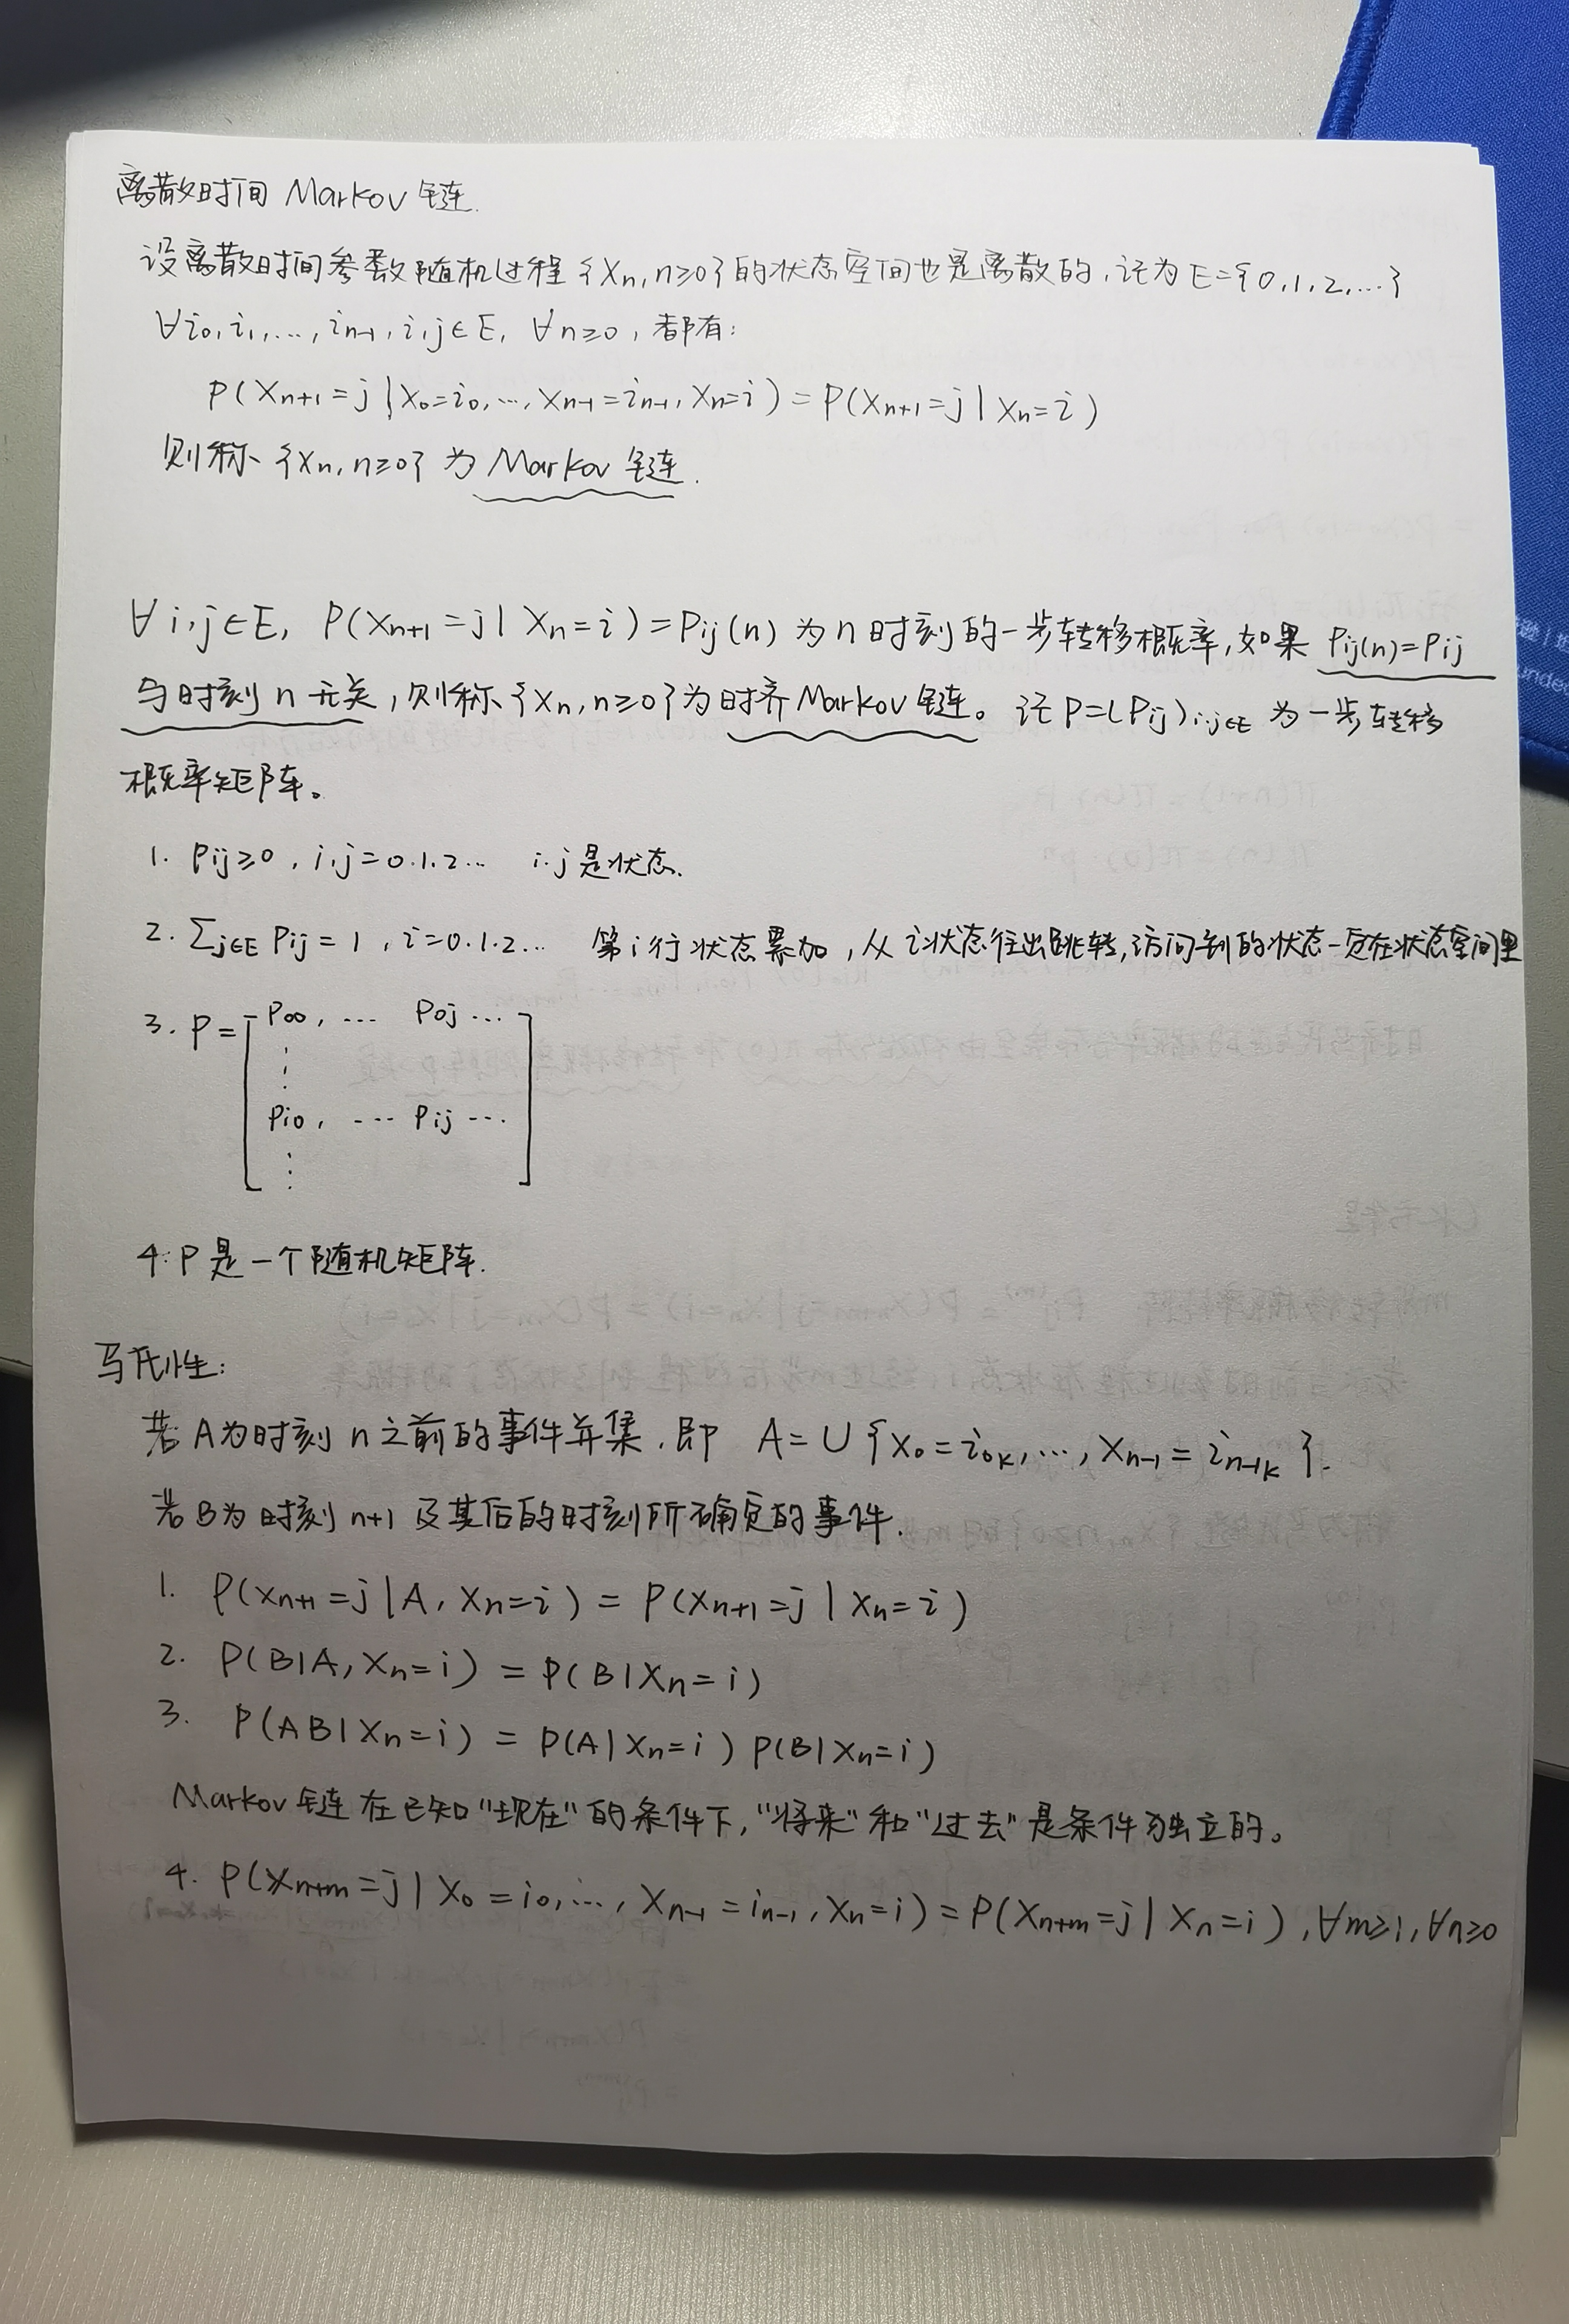 离散时间 Markov 链.
设离散时间参数随机过程 {Xn, n≥0} 的状态空间也是离散的,记为 E={0,1,2,...}
∀i₀,i₁,...,iₙ₋₁,i,j∈E, ∀n≥0,都有:
P(Xₙ₊₁=j|X₀=i₀,...,Xₙ₋₁=iₙ₋₁,Xₙ=i)=P(Xₙ₊₁=j|Xₙ=i)
则称 {Xn, n≥0} 为 Markov 链.
∀i,j∈E, P(Xₙ₊₁=j|Xₙ=i)=Pij(n) 为n时刻的一步转移概率,如果 Pij(n)=Pij
与时刻n无关,则称{Xn,n≥0}为时齐Markov链。记P=(Pij)i,j∈E 为一步转移
概率矩阵。
1. Pij≥0, i,j=0.1.2... i.j是状态.
2. ∑j∈E Pij=1, i=0.1.2... 第i行状态累加,从i状态往出跳转,访问到的状态一定在状态空间里
3. P=[P00, ... P0j ...
⋮
Pi0, ... Pij ...
⋮ ]
4. P是一个随机矩阵.
马氏性:
若A为时刻n之前的事件并集,即 A=∪{X₀=i₀ₖ,...,Xₙ₋₁=iₙ₋₁ₖ}.
若B为时刻n+1及其后的时刻所确定的事件.
1. P(Xₙ₊₁=j|A, Xₙ=i)=P(Xₙ₊₁=j|Xₙ=i)
2. P(B|A, Xₙ=i)=P(B|Xₙ=i)
3. P(AB|Xₙ=i)=P(A|Xₙ=i)P(B|Xₙ=i)
Markov链在已知"现在"的条件下,"将来"和"过去"是条件独立的。
4. P(Xₙ₊ₘ=j|X₀=i₀,...,Xₙ₋₁=iₙ₋₁,Xₙ=i)=P(Xₙ₊ₘ=j|Xₙ=i),∀m≥1,∀n≥0